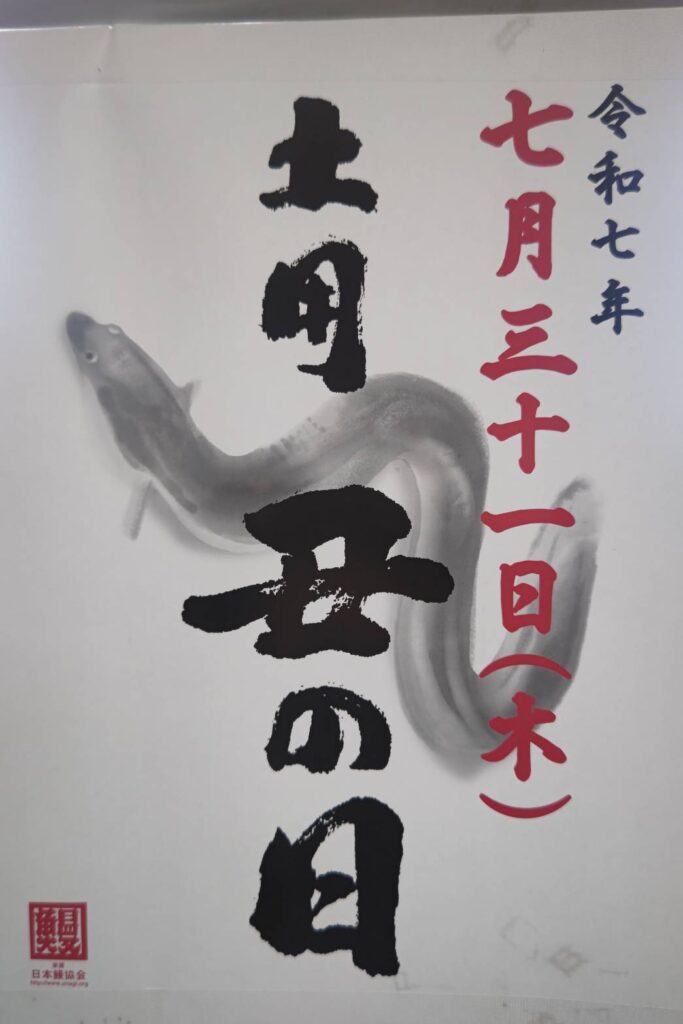 令和七年
七月三十一日(木)
土用丑の日
日本鰻協会
http://www.unagi.org